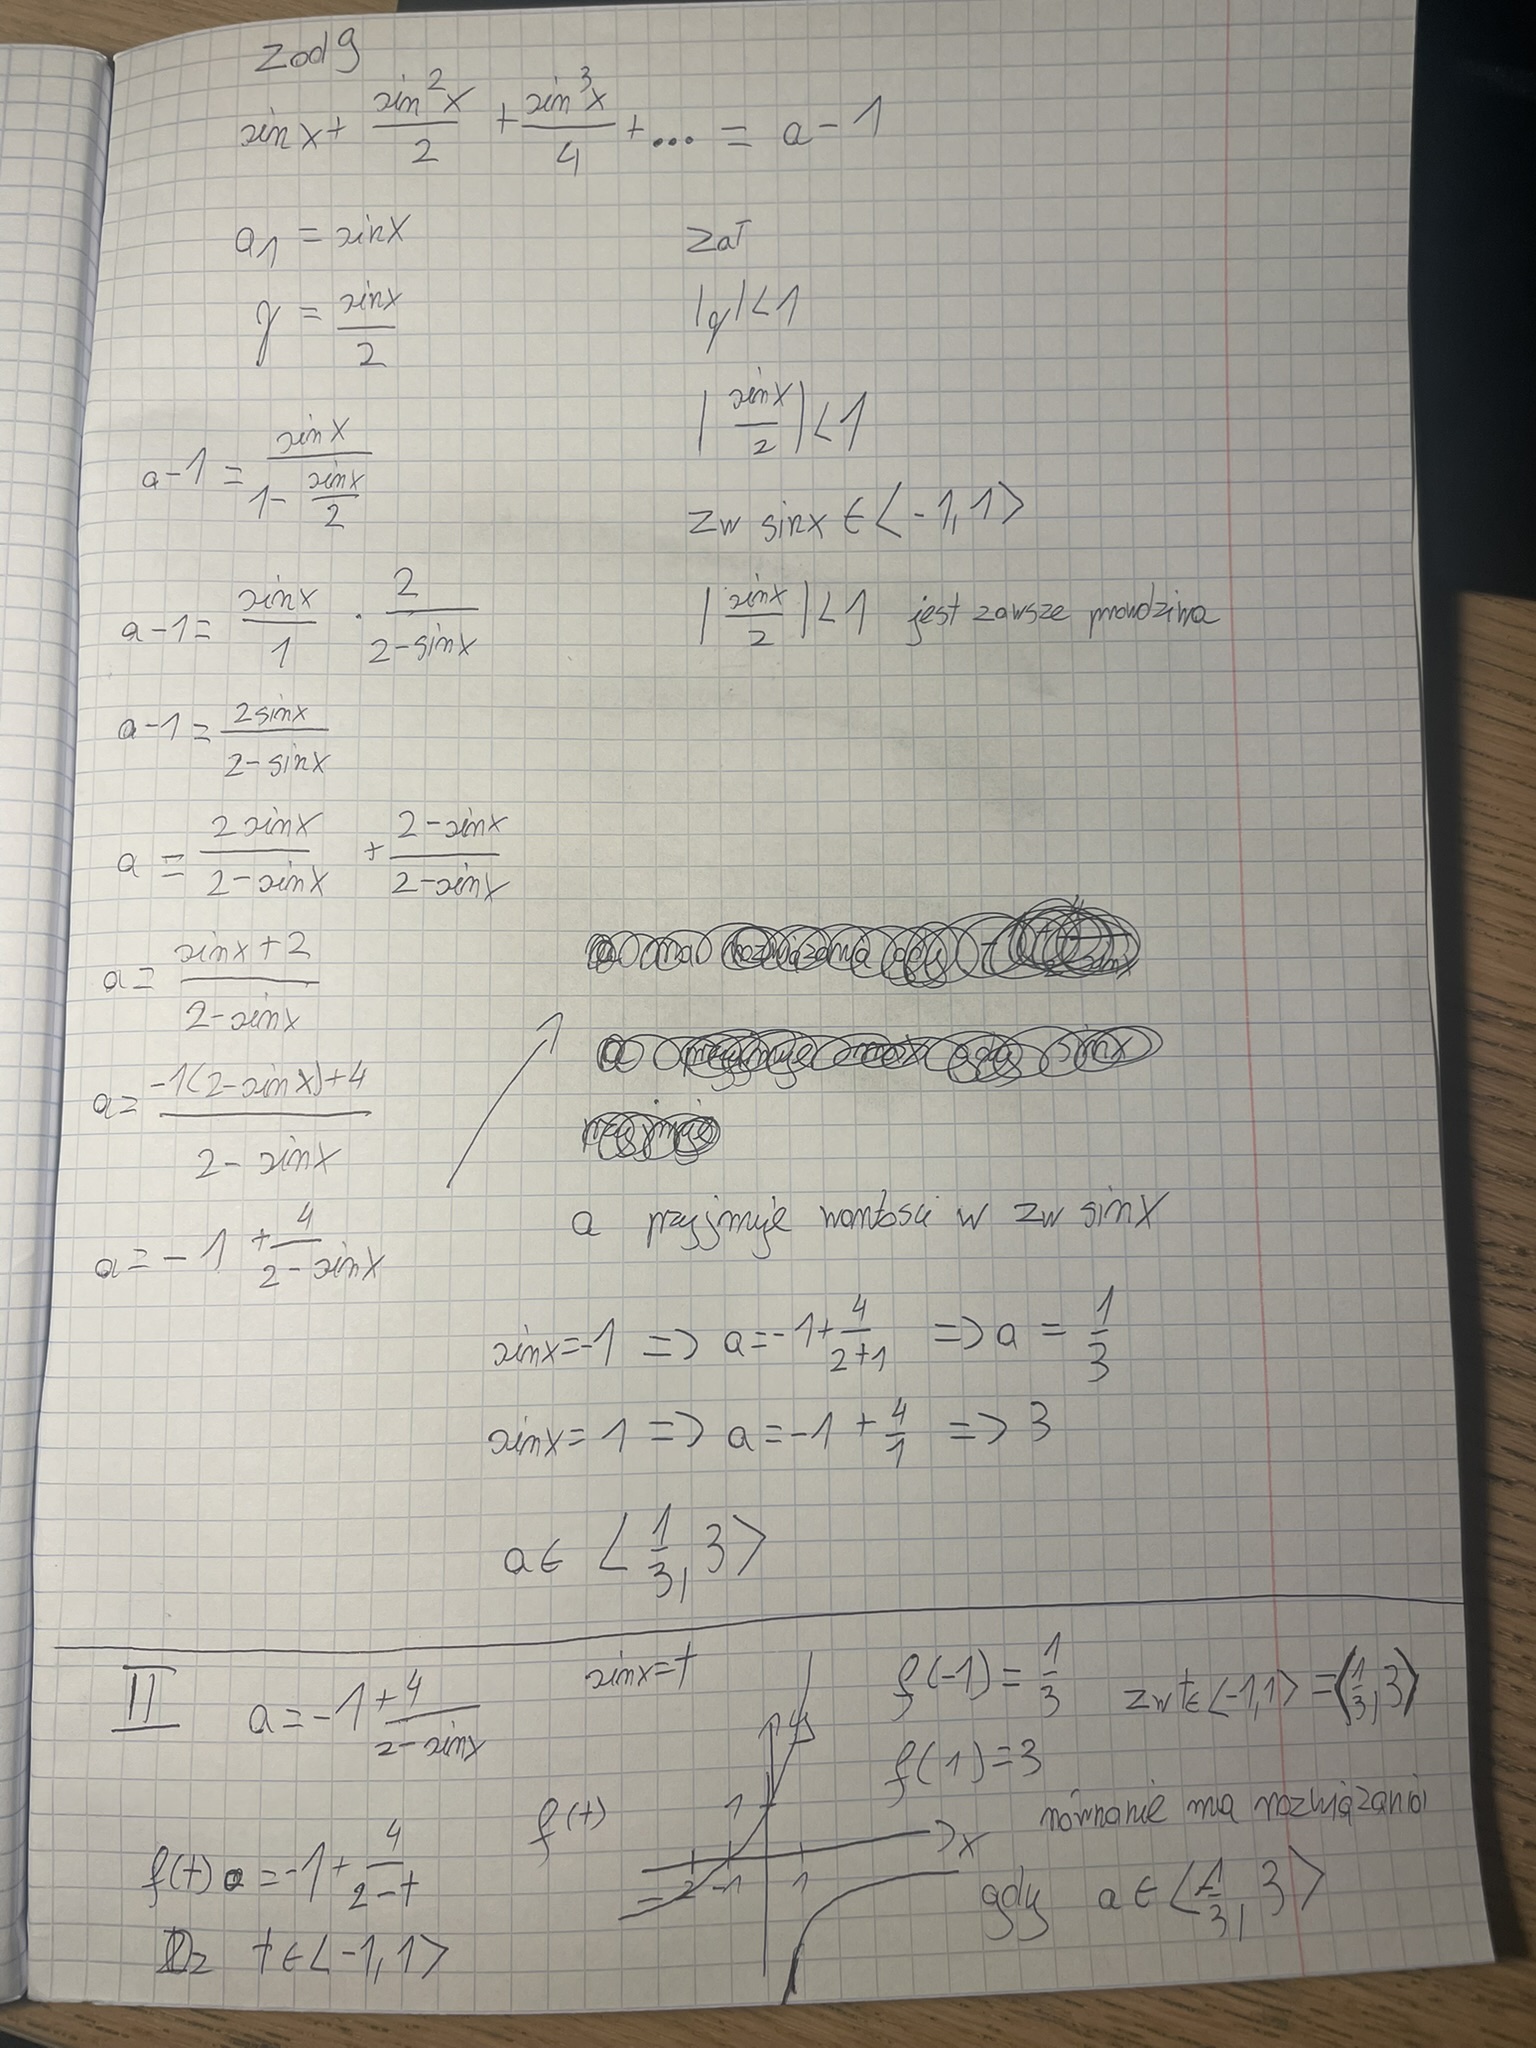 Zad 9
sin x + \frac{sin^2 x}{2} + \frac{sin^3 x}{4} + ... = a - 1
a_1 = sin x
q = \frac{sin x}{2}
a - 1 = \frac{sin x}{1 - \frac{sin x}{2}}
a - 1 = \frac{sin x}{1} · \frac{2}{2 - sin x}
a - 1 = \frac{2 sin x}{2 - sin x}
a = \frac{2 sin x}{2 - sin x} + \frac{2 - sin x}{2 - sin x}
a = \frac{sin x + 2}{2 - sin x}
a = \frac{-1(2 - sin x) + 4}{2 - sin x}
a = -1 + \frac{4}{2 - sin x}
Zał
|q| < 1
|\frac{sin x}{2}| < 1
zw sin x ∈ <-1, 1>
|\frac{sin x}{2}| < 1 jest zawsze prawdziwa
a przyjmuje wartości w zw sin x
sin x = -1 => a = -1 + \frac{4}{2+1} => a = \frac{1}{3}
sin x = 1 => a = -1 + \frac{4}{1} => 3
a ∈ <\frac{1}{3}, 3>
II a = -1 + \frac{4}{2 - sin x}
sin x = t
f(t) = -1 + \frac{4}{2 - t}
Dz t ∈ <-1, 1>
f(t)
y
1
x
-2 -1 1
f(-1) = \frac{1}{3}
f(1) = 3
zw t ∈ <-1, 1> = <\frac{1}{3}, 3>
równanie ma rozwiązania
gdy a ∈ <\frac{1}{3}, 3>